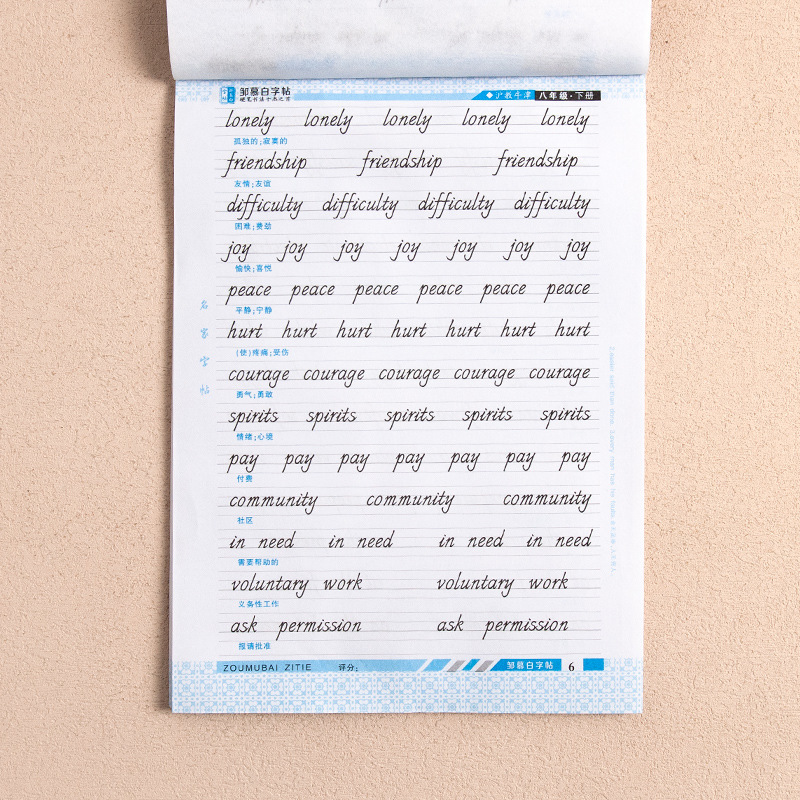 邹慕白字帖
硬笔书法十杰之首
◆沪教牛津 八年级·下册
lonely lonely lonely lonely lonely
孤独的;寂寞的
friendship friendship friendship
友情;友谊
difficulty difficulty difficulty difficulty
困难;费劲
joy joy joy joy joy joy joy
愉快;喜悦
peace peace peace peace peace peace
平静;宁静
hurt hurt hurt hurt hurt hurt hurt
(使)疼痛;受伤
courage courage courage courage courage
勇气;勇敢
spirits spirits spirits spirits spirits
情绪;心境
pay pay pay pay pay pay pay
付费
community community community
社区
in need in need in need in need
需要帮助的
voluntary work voluntary work
义务性工作
ask permission ask permission
报请批准
名家字帖
ZOUMUBAI ZITIE 评分: 邹慕白字帖 6